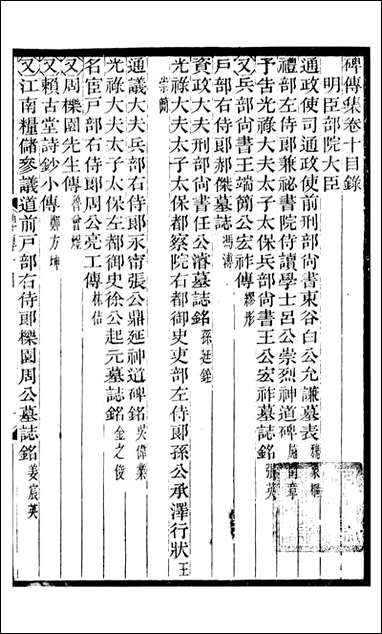 碑傳集卷十目錄
明臣部院大臣
通政使司通政使前刑部尚書東谷白公允謙墓表 魏象樞
禮部左侍郎兼祕書院侍讀學士呂公崇烈神道碑 施閏章
予告光祿大夫太子太保兵部尚書王公宏祚墓誌銘 張英
又兵部尚書王端簡公宏祚傳 繆彤
戶部右侍郎郝傑墓誌 馮溥
資政大夫刑部尚書任公濬墓誌銘 孫廷銓
光祿大夫太子太保都察院右都御史吏部左侍郎孫公承澤行狀 王
崇簡
通議大夫兵部右侍郎永甯張公鼎延神道碑銘 吳偉業
光祿大夫太子太保左都御史徐公起元墓誌銘 金之俊
名宦戶部右侍郎周公亮工傳 林佶
又周櫟園先生傳 魯曾煜
又賴古堂詩鈔小傳 鄭方坤
又江南糧儲參議道前戶部右侍郎櫟園周公墓誌銘 姜宸英